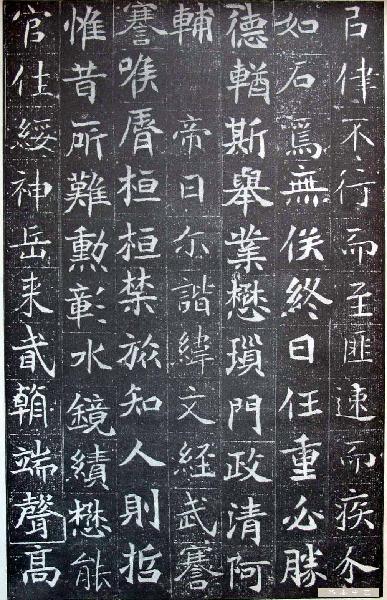 律不行而至匪速而疾介
如石焉無俟終日任重必勝
德輶斯舉業懋瑣門政清阿
輔帝曰尒諧緯文經武謇
謇喉脣桓桓禁旅知人則哲
惟昔所難勳彰水鏡績懋能
官往綏神岳來貳朝端聲高